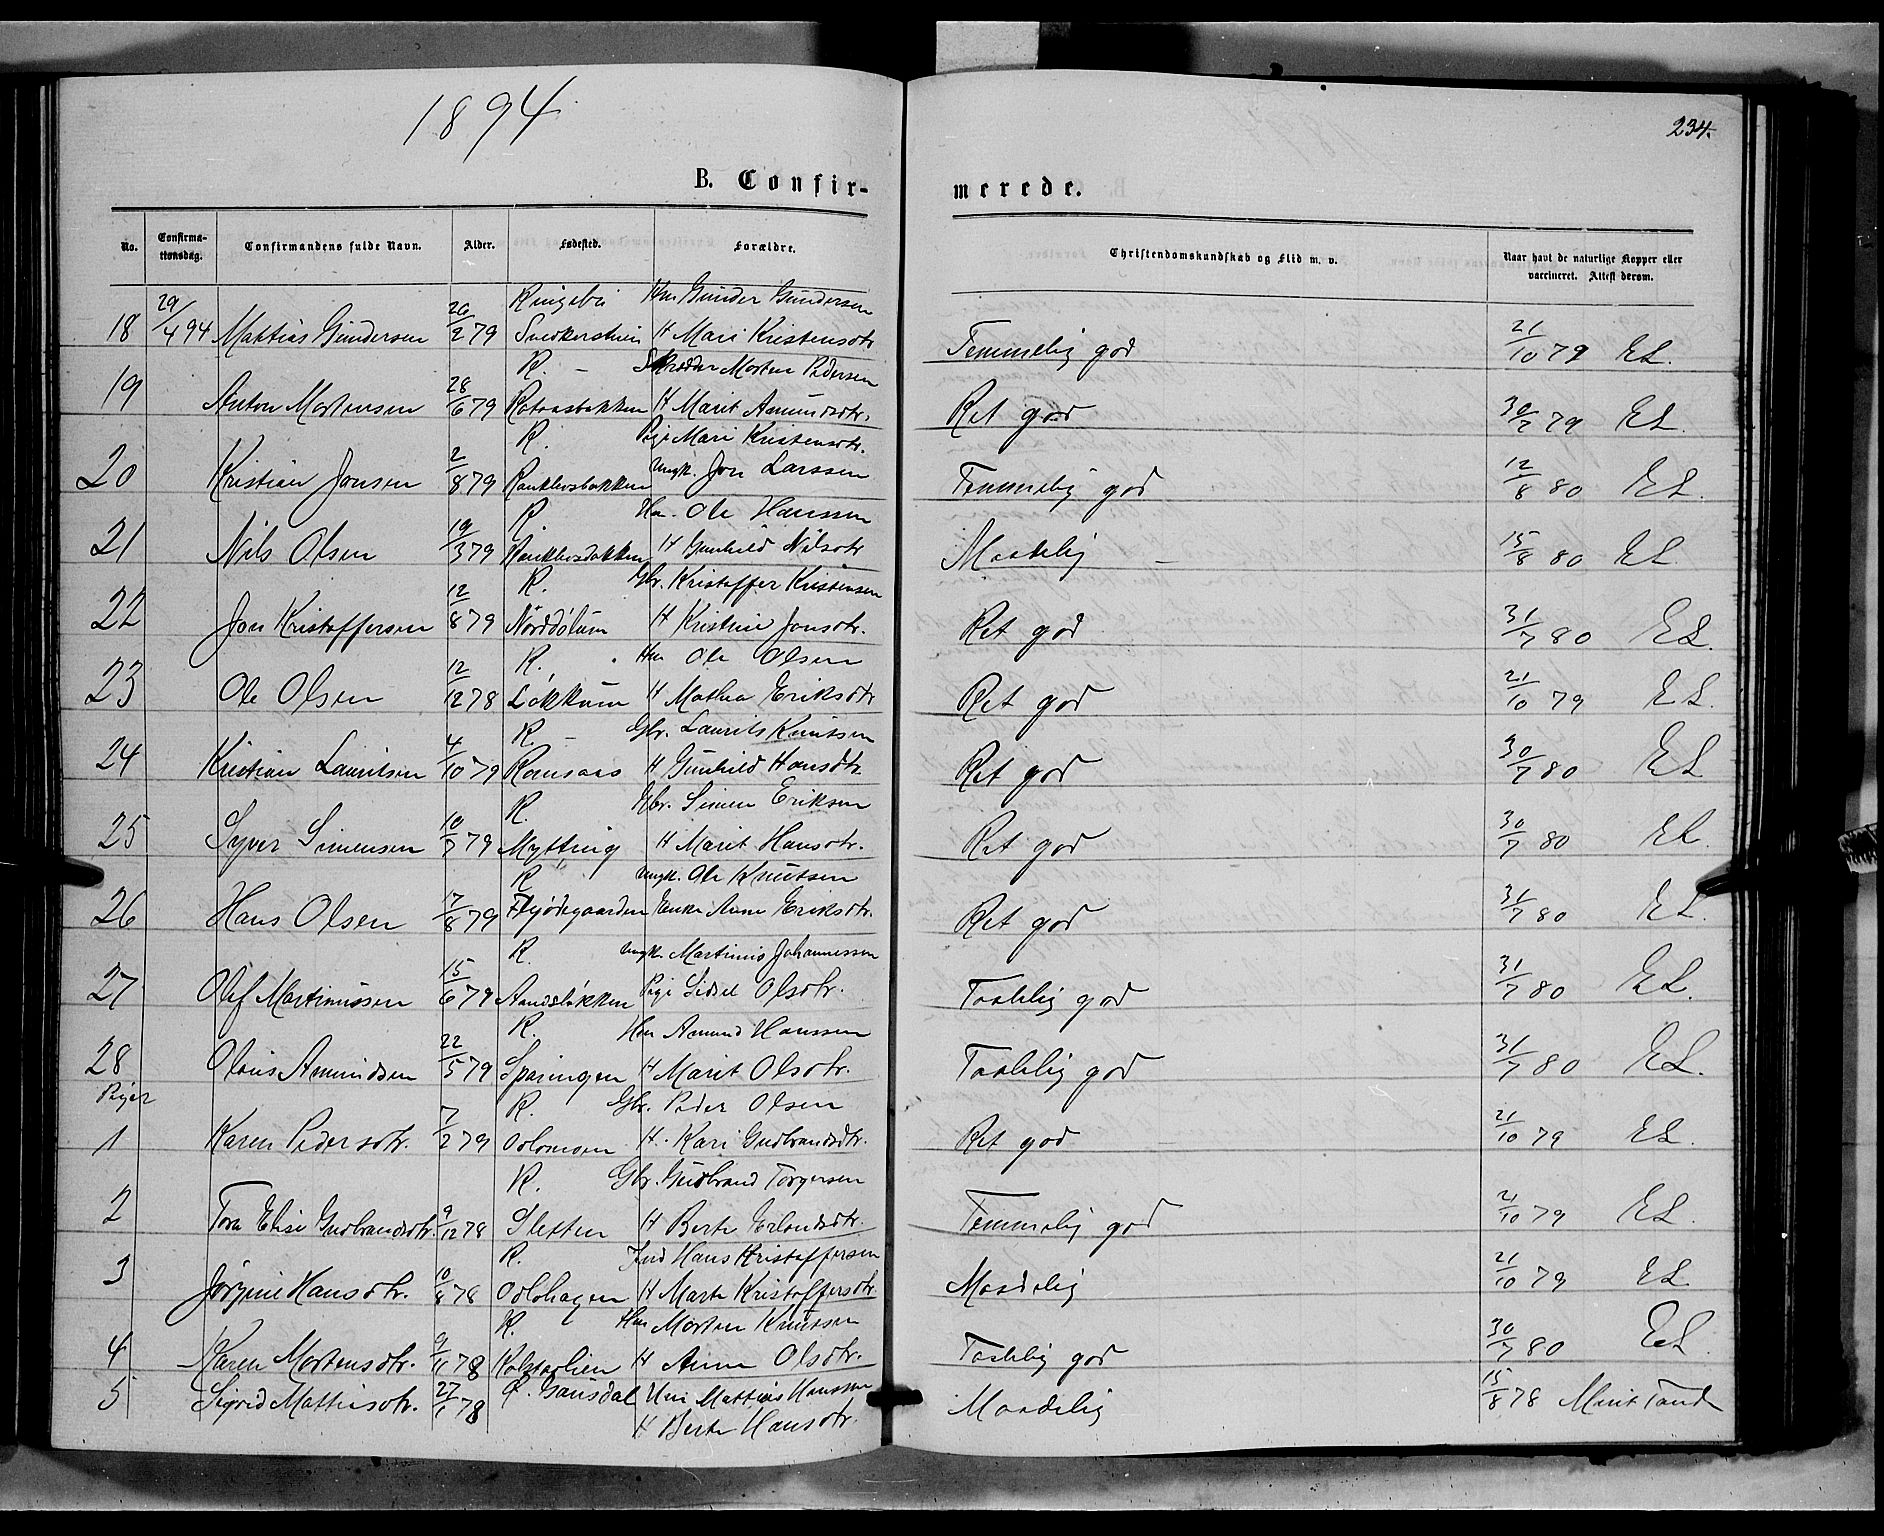 1894
234.
B. Confirmerede.
No. Confirmationsdag. Confirmandens fulde Navn. Alder. Fødested. Forældre. Christendomskundskab og Flid m. v. Naar havt de naturlige Kopper eller vaccineret. Attest derom.
Ringebu Hm Gunder Gundersen
18 29/4 94 Mattias Gundersen 26/2 79 H Mari Kristensdtr. Temmelig god 21/10 79 EL.
R. – Skrædder Morten Pedersen
19 Anton Mortensen 28/6 79 H Marit Amundsdtr. Ret god 30/7 79 EL.
R. Pige Mari Kristensdtr.
20 Kristian Jonsen 2/8 79 Ungk. Jon Larssen Temmelig god 12/8 80 EL.
R. Hm. Ole Hanssen
21 Nils Olsen 19/3 79 H Gunhild Nilsdtr Maadelig – 15/8 80 EL
R. Gbr. Kristoffer Kristensen
22 Jon Kristoffersen 12/8 79 H Kristine Jonsdtr. Ret god 31/7 80 EL.
R. Hm Ole Olsen
23 Ole Olsen 12/12 78 Løkkum H Mathea Eriksdtr Ret god 21/10 79 EL.
R. – Gbr. Laurits Knutsen
24 Kristian Lauritsen 4/10 79 Romsaas H Gunhild Hansdtr. Ret god 30/7 80 EL
R. Gbr. Simen Eriksen
25 Syver Simensen 10/7 79 Mytting H Marit Hansdtr. Ret god 30/7 80 EL.
R Ungk. Ole Knutsen
26 Hans Olsen 17/8 79 Enke Anne Eriksdtr. Ret god 31/7 80 EL.
R. Ungk. Martinus Johannessen
27 Olof Martinussen 15/6 79 Pige Sidsel Olsdtr. Taalelig god 31/7 80 EL.
R. Hm Amund Hanssen
28 Olaus Amundsen 22/5 79 Sparingen H Marit Olsdtr. Taalelig god 31/7 80 EL.
Piger R. Gbr. Peder Olsen
1 Karen Pedersdtr. 7/2 79 Odlomoen H. Kari Gudbrandsdtr. Ret god 21/10 79 EL.
R. Gbr. Gudbrand Torgersen
2 Tora Elise Gudbrandsdtr. 9/12 78 Sletten H Berte Erlandsdtr. Temmelig god 21/10 79 EL.
R. Ind Hans Kristoffersen
3 Jørgine Hansdtr. 10/8 78 Odlohagen H Marte Kristoffersdtr. Maadelig 21/10 79 EL
R. Hm Morten Knutsen
4 Karen Mortensdtr. 9/11 78 Kolstadlien H Anne Olsdtr. Taalelig god 30/7 80 EL.
5 Sigrid Mattiasdtr. 27/1 78 Ø. Gausdal Hm Mattias Hanssen Maadelig 15/8 78 Marit Tande
H Berte Hansdtr.